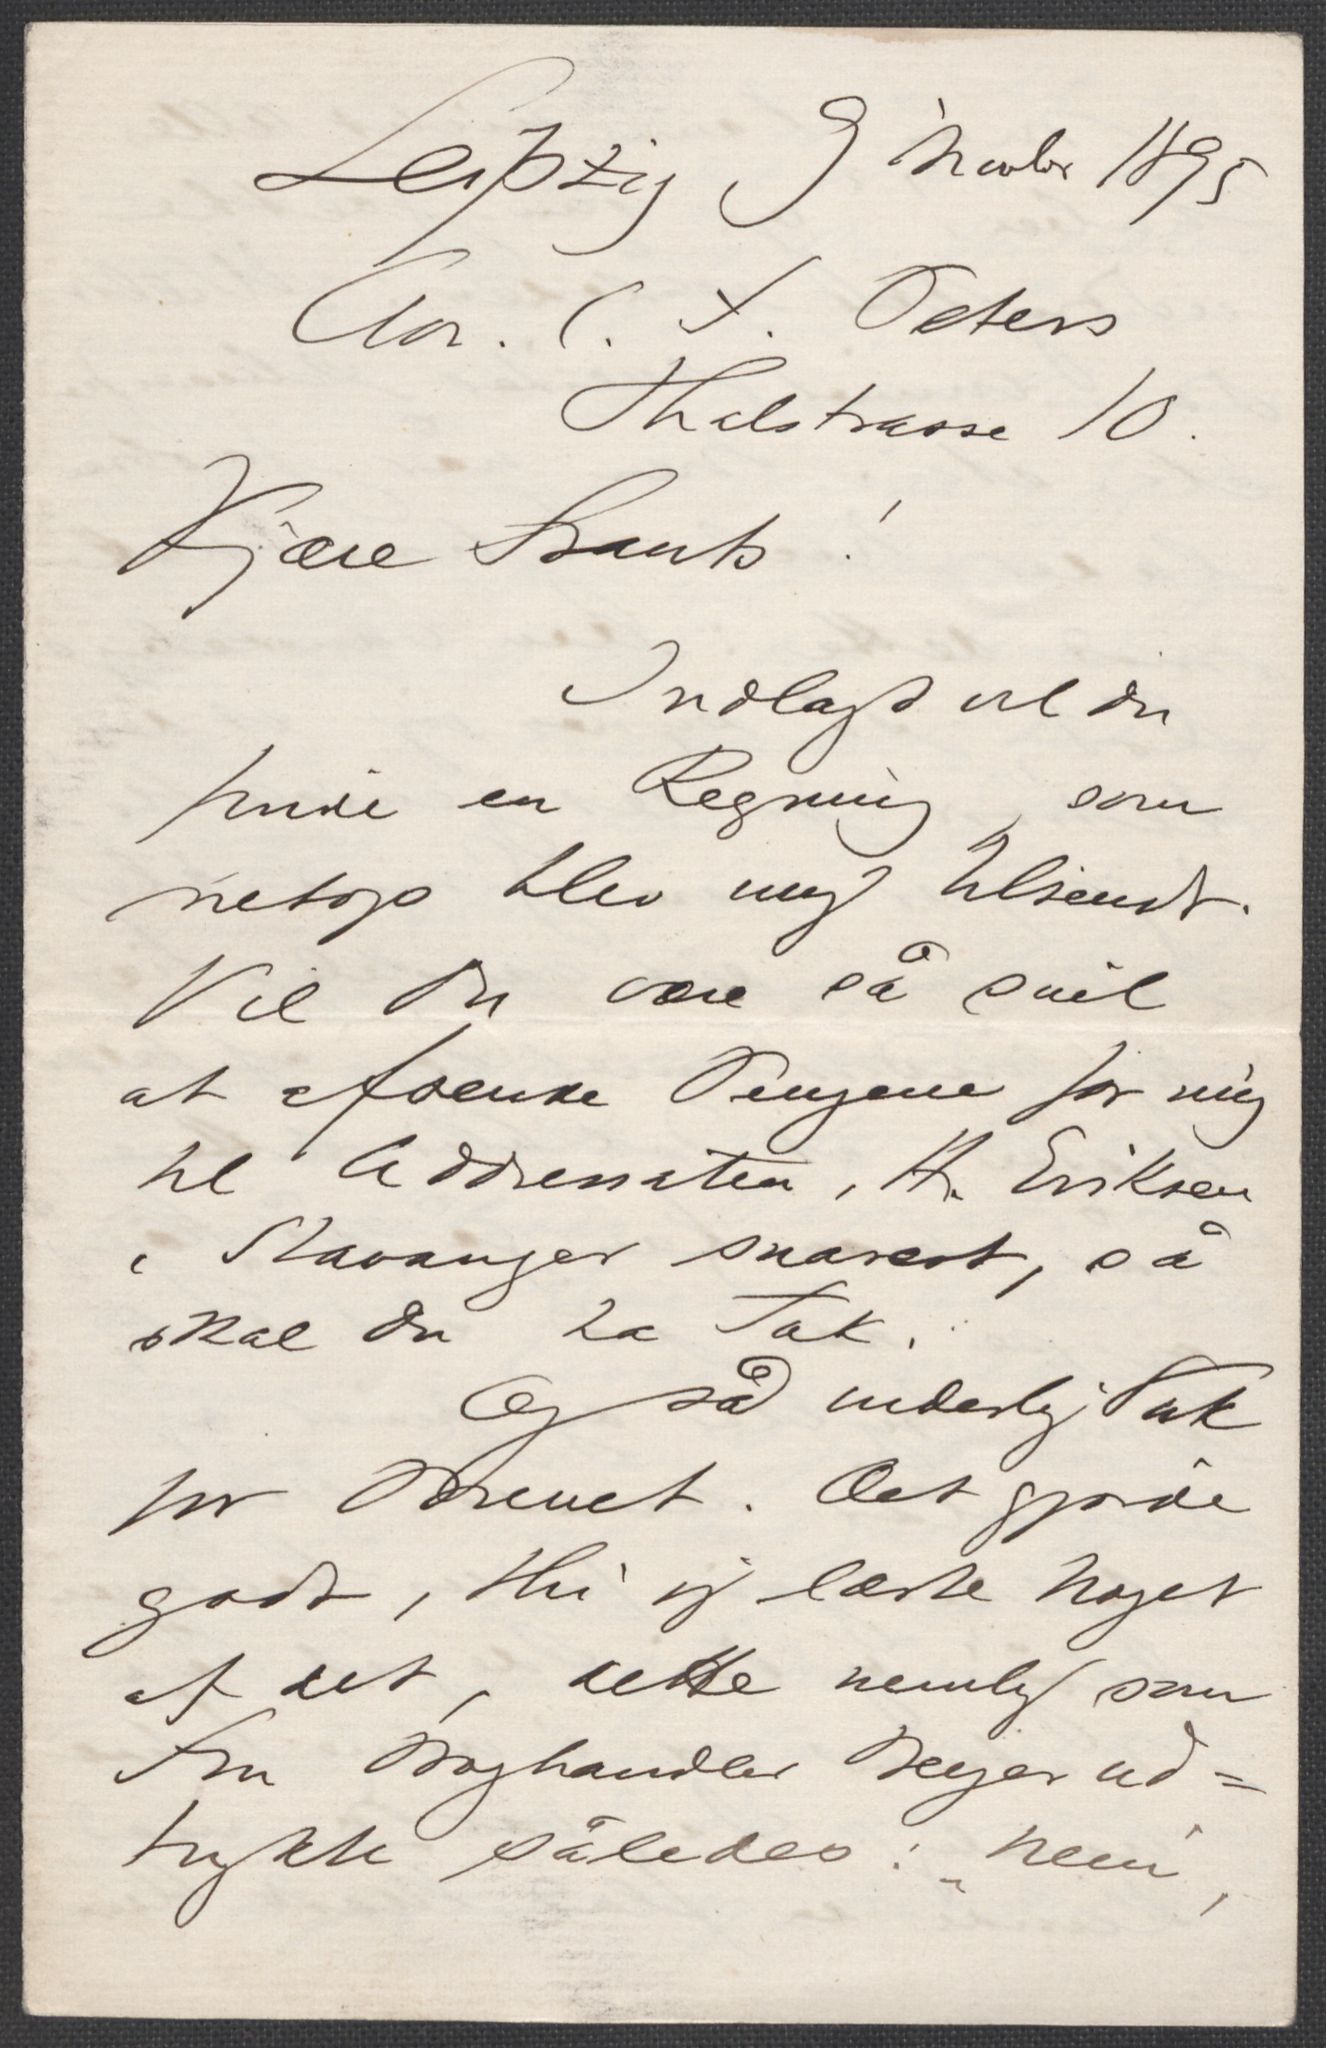 Leipzig 9 Novbr 1895
Adr. C. F. Peters
Thalstrasse 10.
Kjære Frants!
Indlagt vil du
finde en Regning, som
netop blev mig tilsendt.
Vil du være så snil
at afsende Pengene for mig
til Addressaten, H. Eriksen
i Stavanger snarest, så
skal du ha Tak.
Og så inderlig Tak
for Brevet. Det gjorde
godt, thi jeg læste noget
af det, dette nemlig som
Fru Boghandler Beyer ud=
trykte således: „Nei,